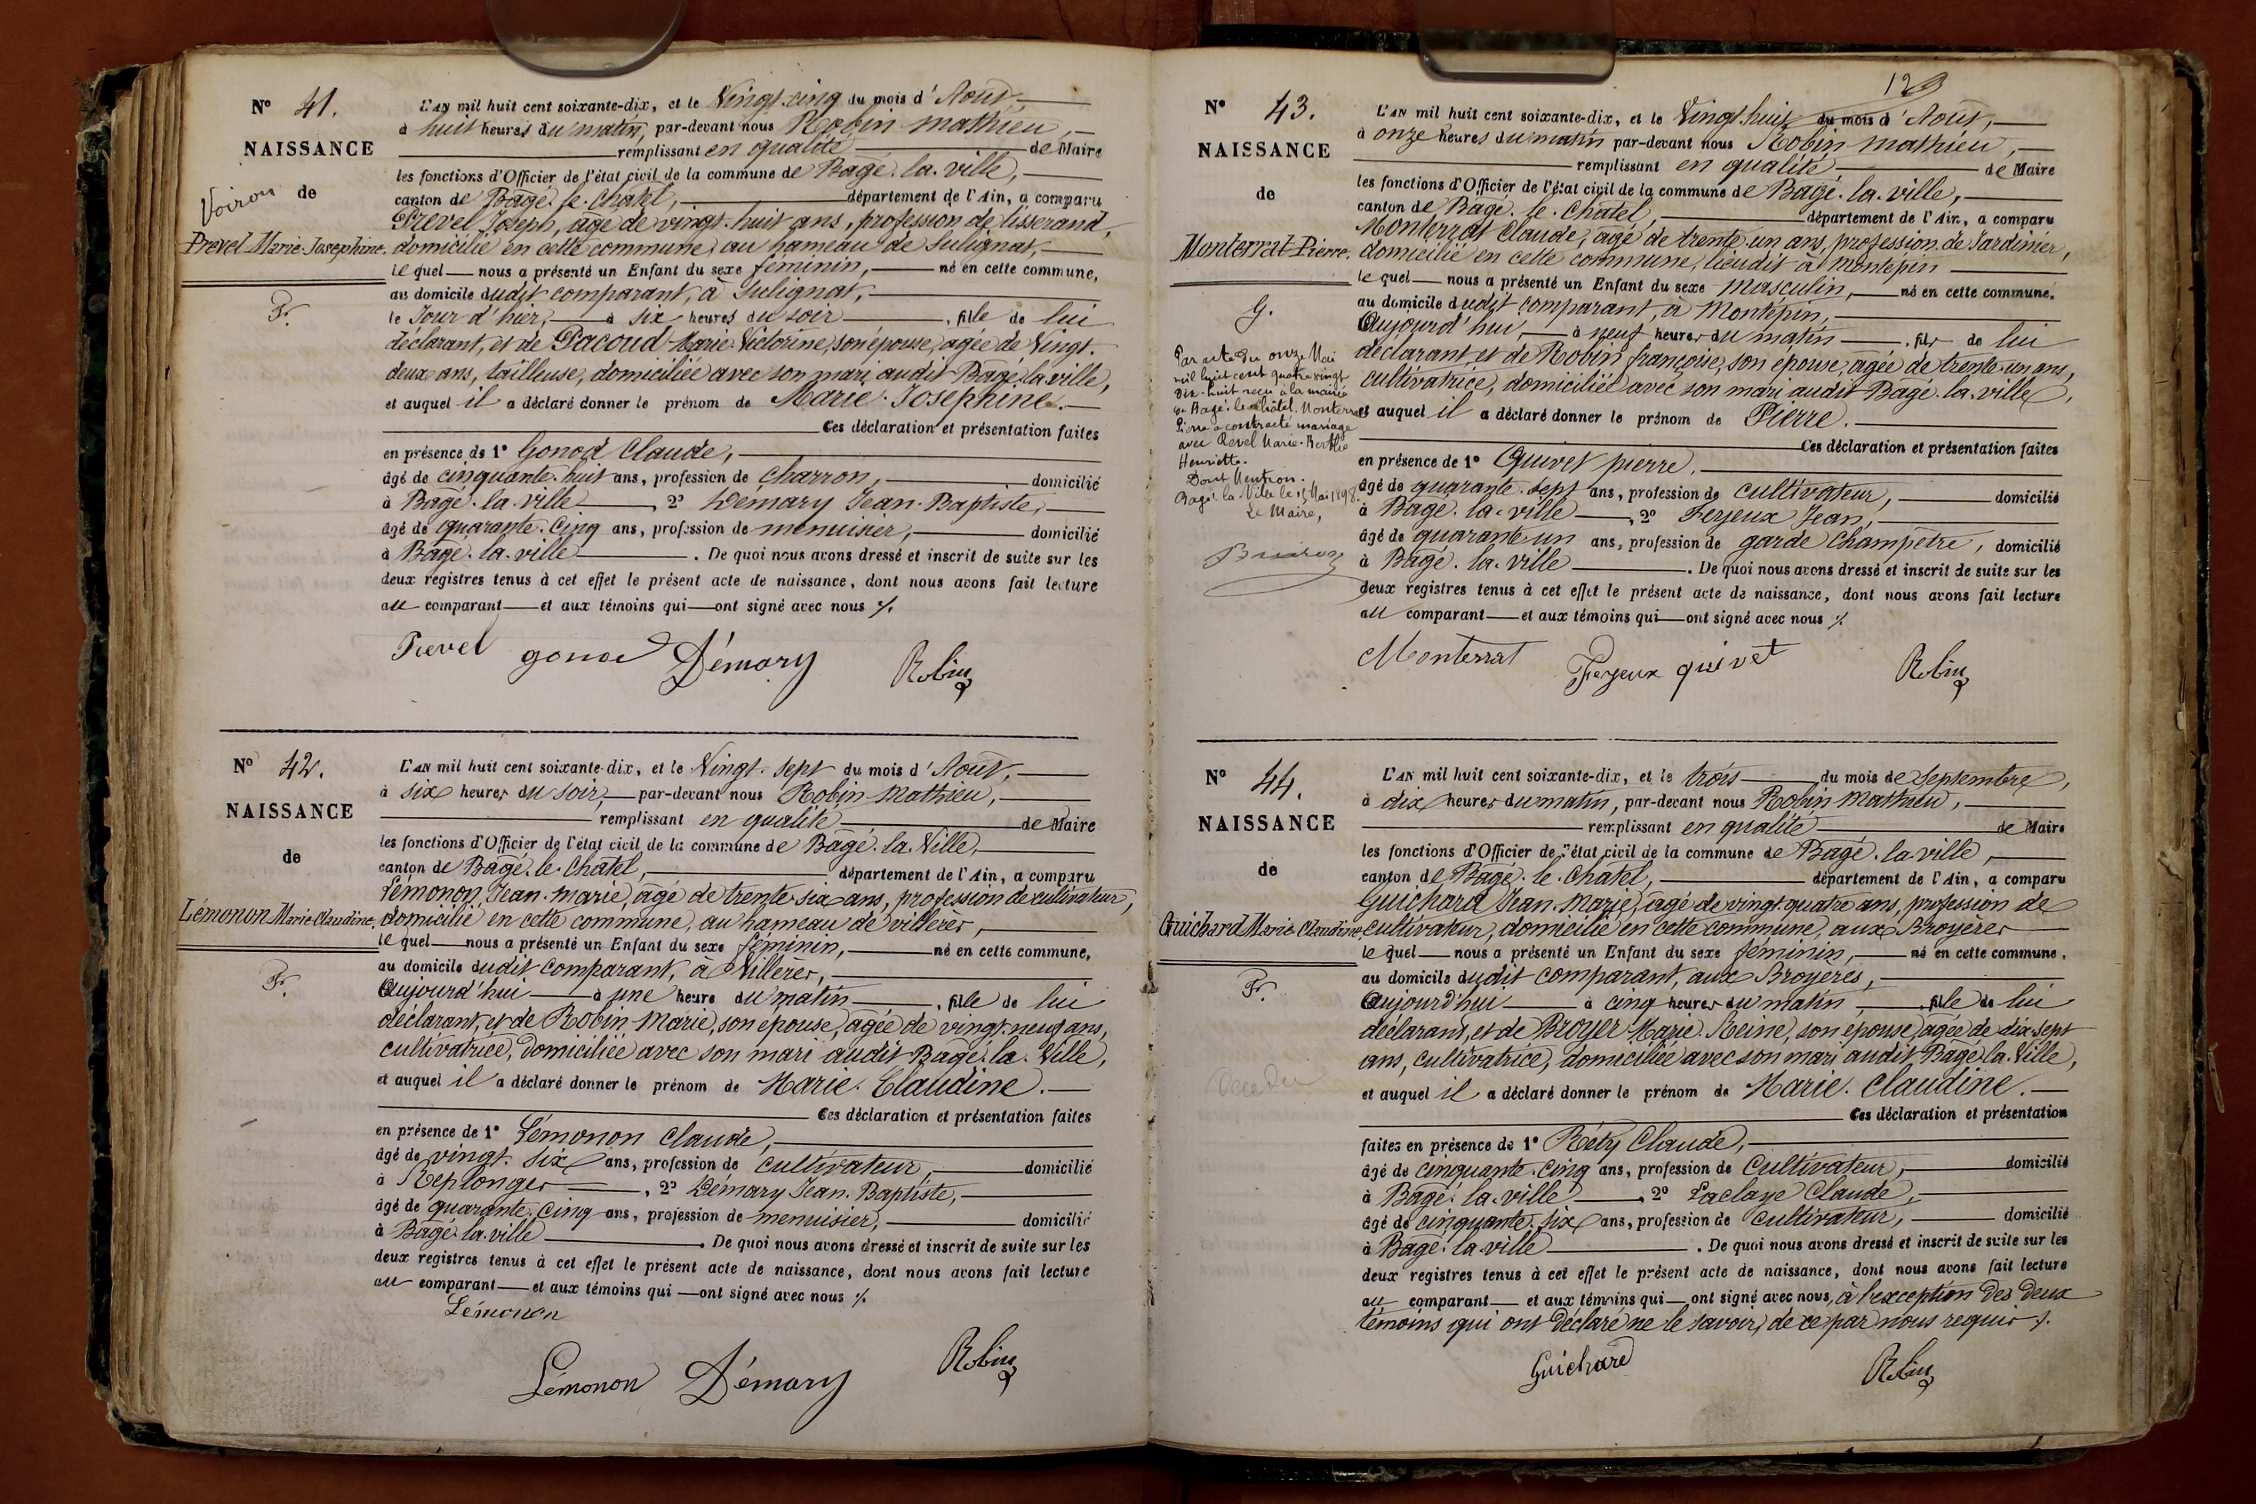 N° 41.
NAISSANCE
de
Voiron
Prevel Marie-Josephine.
Fr.
L'AN mil huit cent soixante-dix, et le Vingt-cinq du mois d'Aout,
à huit heures du matin, par-devant nous Robin Mathieu,
remplissant en qualité de Maire
les fonctions d'Officier de l'état civil de la commune de Bagé-la-ville,
canton de Bagé-le-Chatel, département de l'Ain, a comparu
Prevel Joseph, agé de vingt-huit ans, profession de tisserand,
domicilié en cette commune, au hameau de Sulignat,
le quel nous a présenté un Enfant du sexe féminin, né en cette commune,
au domicile dudit comparant, à Sulignat,
le Jour d'hier, à six heures du soir, fille de lui
déclarant, et de Pacoud Marie-Victorine, son épouse, agée de Vingt-
deux ans, tailleuse, domiciliée avec son mari audit Bagé-la-ville,
et auquel il a déclaré donner le prénom de Marie-Josephine.
Ces déclaration et présentation faites
en présence de 1° Gonod Claude,
âgé de cinquante-huit ans, profession de charron, domicilié
à Bagé-la-ville, 2° Démary Jean-Baptiste,
âgé de quarante-cinq ans, profession de menuisier, domicilié
à Bagé-la-ville. De quoi nous avons dressé et inscrit de suite sur les
deux registres tenus à cet effet le présent acte de naissance, dont nous avons fait lecture
au comparant et aux témoins qui ont signé avec nous ./.
Prevel gonod Démary Robin
N° 42.
NAISSANCE
de
Lémonon Marie-Claudine.
Fr.
L'AN mil huit cent soixante-dix, et le Vingt-sept du mois d'Aout,
à six heures du soir, par-devant nous Robin Mathieu,
remplissant en qualité de Maire
les fonctions d'Officier de l'état civil de la commune de Bagé-la-Ville,
canton de Bagé-le-Chatel, département de l'Ain, a comparu
Lémonon Jean-Marie, agé de trente-six ans, profession de cultivateur,
domicilié en cette commune, au hameau de villerès,
le quel nous a présenté un Enfant du sexe féminin, né en cette commune,
au domicile dudit comparant, à Villerès,
Aujourd'hui à une heure du matin, fille de lui
déclarant, et de Robin Marie, son épouse, agée de vingt-neuf ans,
cultivatrice, domiciliée avec son mari audit Bagé-la-Ville,
et auquel il a déclaré donner le prénom de Marie-Claudine.
Ces déclaration et présentation faites
en présence de 1° Lémonon Claude,
âgé de vingt-six ans, profession de cultivateur, domicilié
à Replonges, 2° Démary Jean-Baptiste,
âgé de quarante-cinq ans, profession de menuisier, domicilié
à Bagé-la-ville. De quoi nous avons dressé et inscrit de suite sur les
deux registres tenus à cet effet le présent acte de naissance, dont nous avons fait lecture
au comparant et aux témoins qui ont signé avec nous ./.
Lémonon
Lémonon Démary Robin
129
N° 43.
NAISSANCE
de
Monterrat Pierre.
G.
Par acte du onze Mai
mil huit cent quatre vingt
dix-huit reçu à la mairie
de Bagé-le-Châtel, Monterrat
Pierre a contracté mariage
avec Revel Marie-Berthe
Henriette.
Dont Mention.
Bagé-la-Ville le 15 Mai 1898.
Le Maire,
L'AN mil huit cent soixante-dix, et le Vingt-huit du mois d'Aout,
à onze heures du matin par-devant nous Robin Mathieu,
remplissant en qualité de Maire
les fonctions d'Officier de l'état civil de la commune de Bagé-la-ville,
canton de Bagé-le-Chatel, département de l'Ain, a comparu
Monterrat Claude, agé de trente-un ans, profession de Jardinier,
domicilié en cette commune, lieudit à Montépin
le quel nous a présenté un Enfant du sexe masculin, né en cette commune,
au domicile dudit comparant, à Montépin,
Aujourd'hui à neuf heures du matin, fils de lui
déclarant et de Robin françoise, son épouse, agée de trente-un ans,
cultivatrice, domiciliée avec son mari audit Bagé-la-ville,
et auquel il a déclaré donner le prénom de Pierre.
Ces déclaration et présentation faites
en présence de 1° Quivet pierre,
âgé de quarante-sept ans, profession de cultivateur, domicilié
à Bagé-la-ville, 2° Feyeux Jean,
âgé de quarante-un ans, profession de garde Champêtre, domicilié
à Bagé-la-ville. De quoi nous avons dressé et inscrit de suite sur les
deux registres tenus à cet effet le présent acte de naissance, dont nous avons fait lecture
au comparant et aux témoins qui ont signé avec nous ./.
Monterrat Feyeux quivet Robin
N° 44.
NAISSANCE
de
Guichard Marie-Claudine.
Fr.
L'AN mil huit cent soixante-dix, et le trois du mois de Septembre,
à dix heures du matin, par-devant nous Robin Mathieu,
remplissant en qualité de Maire
les fonctions d'Officier de l'état civil de la commune de Bagé-la-ville,
canton de Bagé-le-Chatel, département de l'Ain, a comparu
Guichard Jean-Marie, agé de vingt-quatre ans, profession de
cultivateur, domicilié en cette commune, aux Broyères
le quel nous a présenté un Enfant du sexe féminin, né en cette commune,
au domicile dudit comparant, aux Broyères,
Aujourd'hui à cinq heures du matin, fille de lui
déclarant, et de Broyer Marie-Reine, son épouse, agée de dix-sept
ans, cultivatrice, domiciliée avec son mari audit Bagé-la-Ville,
et auquel il a déclaré donner le prénom de Marie-Claudine.
Ces déclaration et présentation
faites en présence de 1° Réty Claude,
âgé de cinquante-cinq ans, profession de Cultivateur, domicilié
à Bagé-la-ville, 2° Laclaye Claude,
âgé de cinquante-six ans, profession de cultivateur, domicilié
à Bagé-la-ville. De quoi nous avons dressé et inscrit de suite sur les
deux registres tenus à cet effet le présent acte de naissance, dont nous avons fait lecture
au comparant et aux témoins qui ont signé avec nous, à l'exception des deux
témoins qui ont déclaré ne le savoir, de ce par nous requis ./.
Guichard Robin